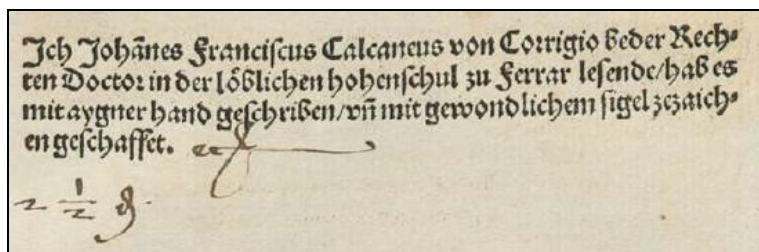 Ich Johānes Franciscus Calcaneus von Corrigio beder Rech⸗
ten Doctor in der löblichen hohenschul zu Ferrar lesende/hab es
mit aygner hand geschriben/vn̄ mit gewondlichem sigel zezaich⸗
en geschaffet.
2 1/2